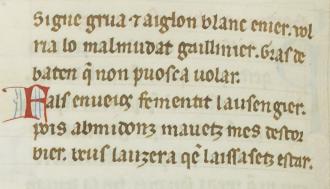 Sigue grua ⁊ aiglon blanc enier. vol
ria lo malmudat gaillinier. Gras de
baten q̃ non puosca uolar.
Fals enueios fementit lausengier.
pois ab midonz mauetz mes destor
bier. beus lauzera qẽ laissasetz estar.